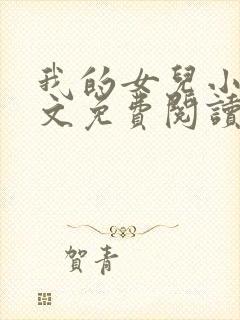 我的女兒小
文免費閱讀
賀青